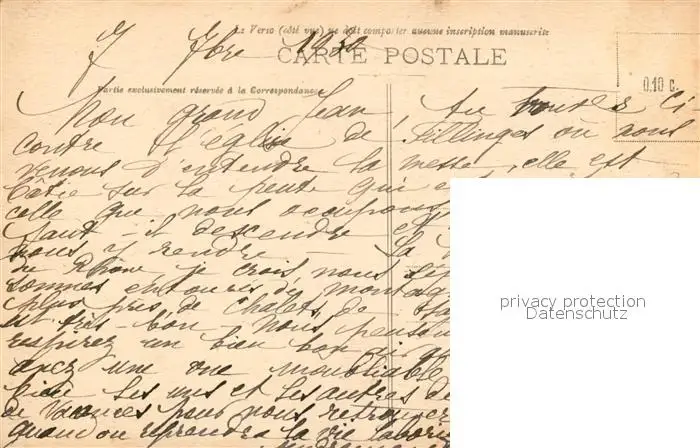 Le Verso (côté vue) ne doit comporter aucune inscription manuscrite
7 7bre 1920
CARTE POSTALE
0.10 c.
Partie exclusivement réservée à la Correspondance
Mon grand Jean, tu trouves ci
contre l'église de Fillinges où nous
venons d'entendre la messe, elle est
bâtie sur la pente qui
celle que nous occupons
faut-il descendre et
nous y rendre - La
de Rhône je crois, nous
sommes entourés de montag
plus près de chalets, de
est très-bon - nous pensons
respirez un bien bon air
avez une vue inoubliable
bien les uns et les autres de
de vacances pour nous retrouver
quand on reprendra la vie
privacy protection
Datenschutz